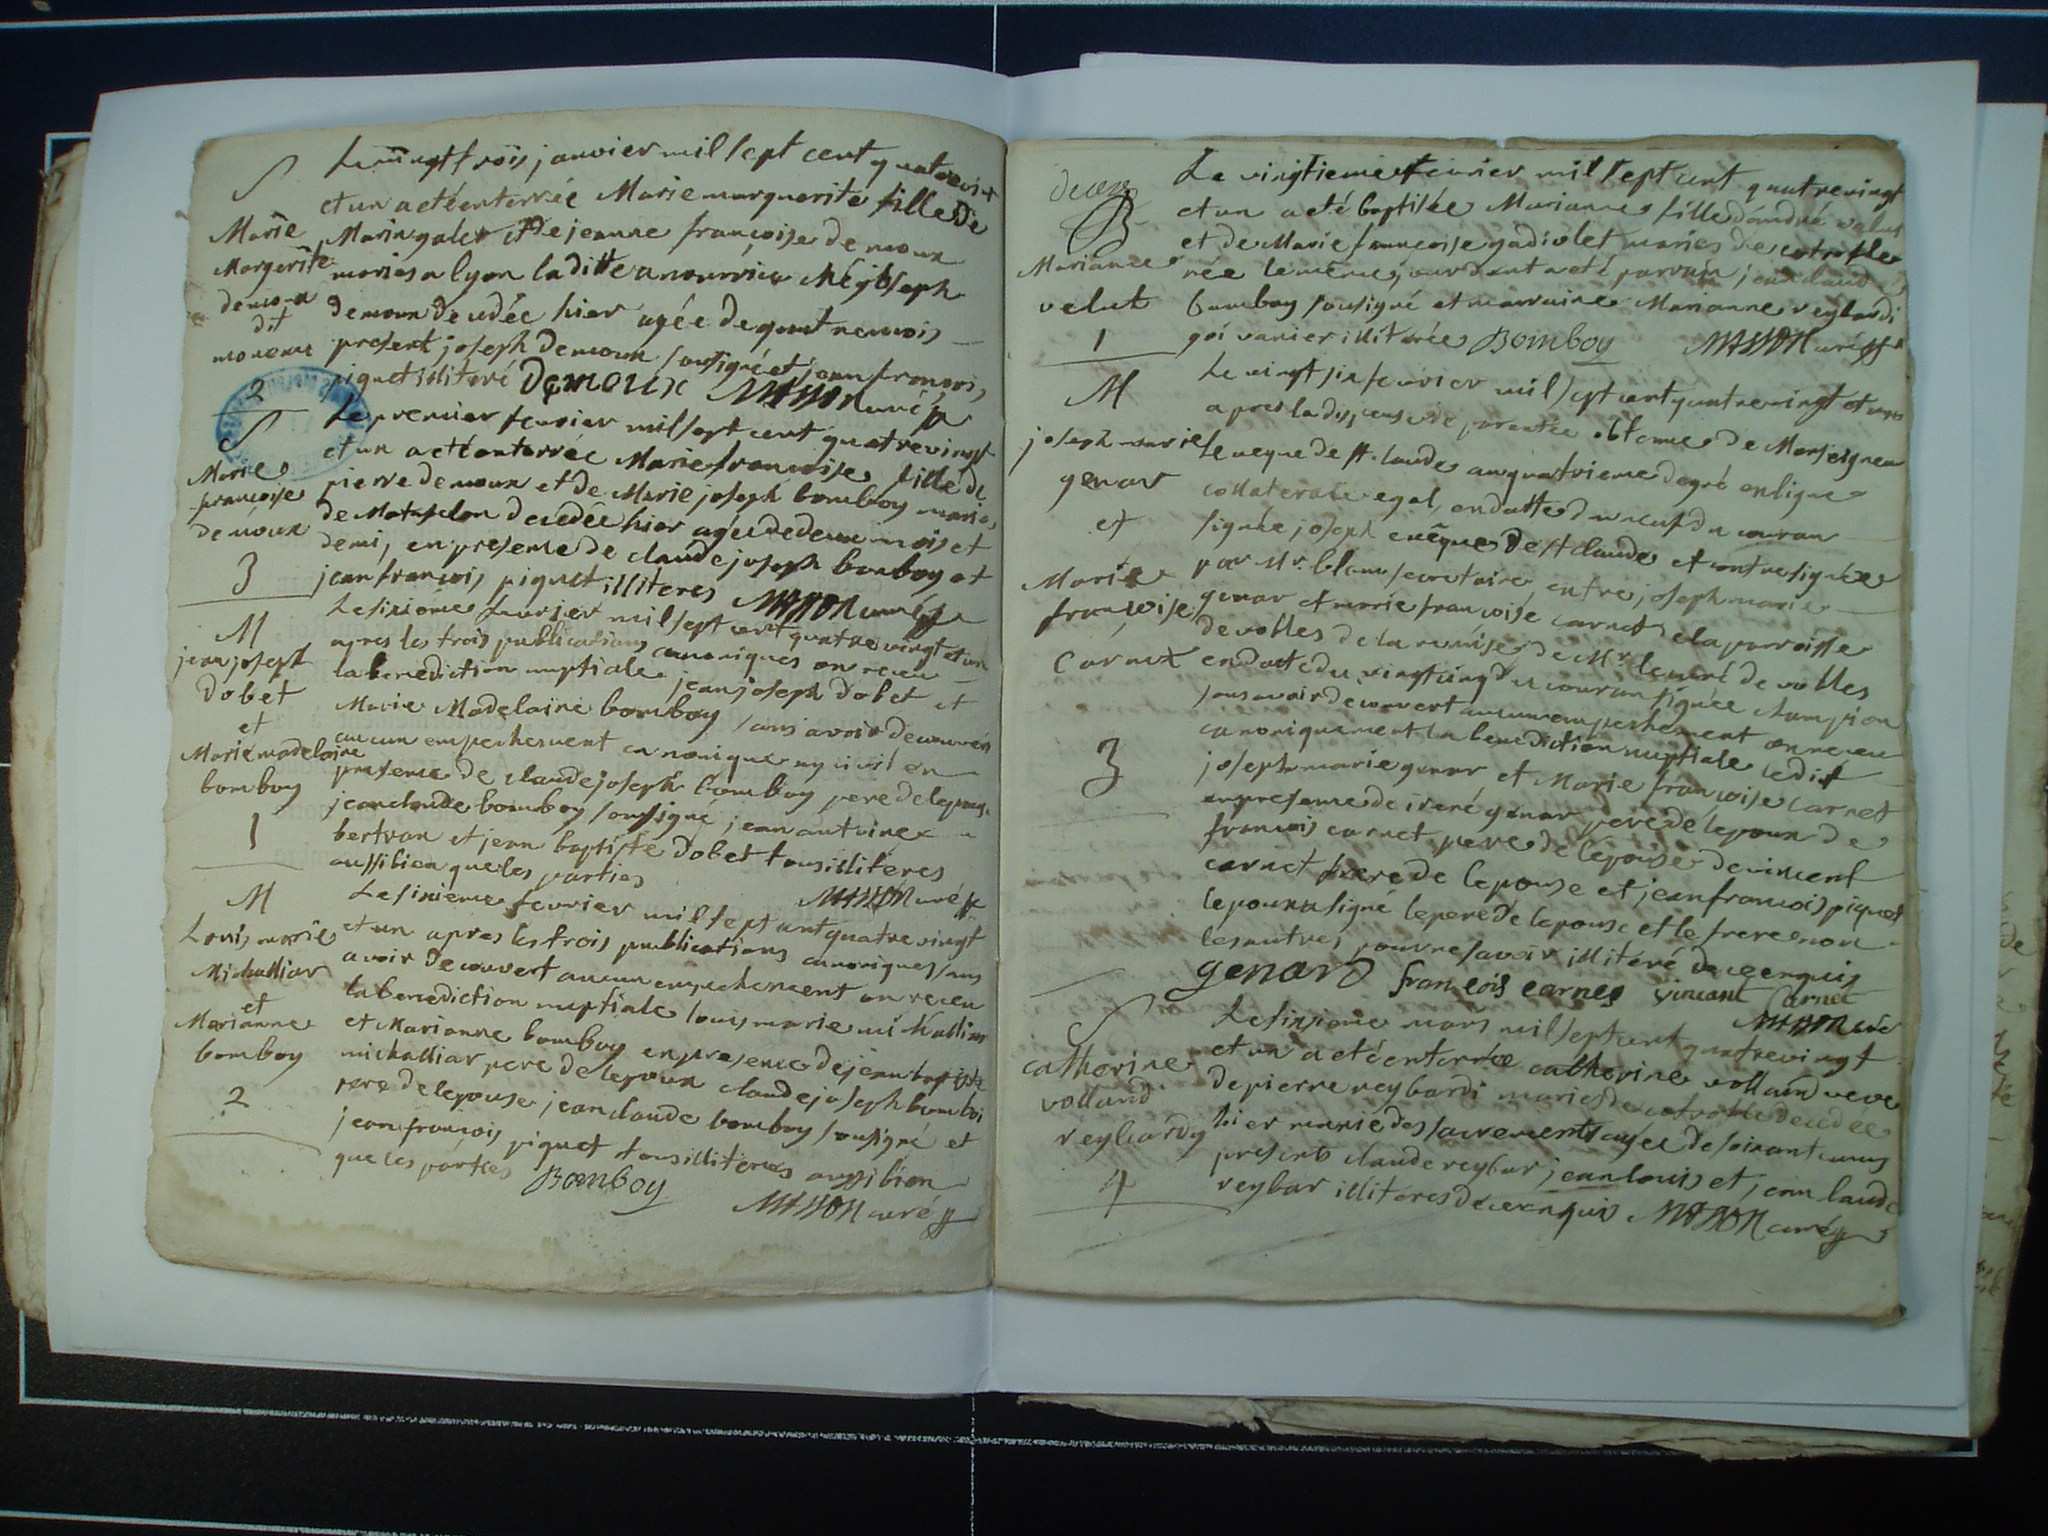 S
Le vingt trois janvier mil sept cent quatrevint
et un a été enterrée Marie marguerite fille de
Marie
Marin gale et de jeanne françoise de moux
Margerite
mariés a lyon la ditte a nourrice chéz joseph
demoux
demoux decedée hier agée de quatre mois
dit
present joseph demoux sousigné et jean françois
piquet illiteré Demoux MASSON curé
2
S
Le premier fevrier mil sept cent quatrevingt
et un a été enterrée Marie françoise fille de
Marie
françoise
pierre demoux et de Marie joseph bomboy mariés
demoux
de Matafelon decedée hier agée de deux mois et
demi, en presence de claude joseph bomboy et
3
jean françois piquet illiteres MASSON curé
M
Le sixiéme fevrier mil sept cent quatre vingt et un
jean joseph
apres les trois publications canoniques on receu
dobet
la benediction nuptiale jean joseph dobet et
et
Marie Madelaine bomboy sans avoir decouvert
Marie madelaine
aucun empechement canonique ny civil en
bomboy
presence de claude joseph bomboy pere de lepouse
jean claude bomboy sousigné jean antoine
1
bertran et jean baptiste dobet tous illiteres
aussi bien que les parties
MASSON curé
M
Le sixieme fevrier mil sept cent quatre vingt
Louis marie
et un apres les trois publications canoniques sans
Michalliar
avoir decouvert aucun empechement on receu
et
la benediction nuptiale louis marie michalliar
Marianne
et Marianne bomboy en presence de jean baptiste
bomboy
michalliar pere de lepoux claude joseph bomboi
2
pere de lepouse jean claude bomboy sousigné et
jean françois piquet tous illiteres aussi bien
que les parties Bomboy
MASSON curé
B
Le vingtieme fevrier mil sept cent quatre vingt
et un a été baptisée Marianne fille velut
Marianne
et de Marie françoise gadiolet mariés de
velut
née le même jour dont a été parrain jean claude
bomboy sousigné et marraine Marianne reybardi
1
illiterée Bomboy MASSON curé
M
Le vingt six fevrier mil sept cent quatre vingt et un
apres la dispense de parentée obtenue de Monseigneur
joseph marie
leveque de st claude au quatrieme degré en ligne
genar
collaterale egal, en datte du neuf du couran
et
signée joseph evêque de st claude et contresignée
Marie
par Mr. blanc secretaire entre joseph marie
françoise
genar et marie françoise carnet de la parroisse
carnet
de volles de la remise de Mr. le curé de volles
en datte du vingt cinq du courant signée champion
sans avoir decouvert aucun empechement on receu
3
canoniquement la benediction nuptiale ledit
joseph marie genar et Marie françoise carnet
en presence de genar pere de lepoux de
francois carnet pere de lepouse de vincent
carnet frere de lepouse et jean francois piquet
lepoux a signé le pere de lepouse et le frere non
les autres pour ne savoir illiteré de ce enquis
genard françois carnes vincant Carnet
MASSON curé
S
Le sixiéme mars mil sept cent quatrevingt
catherine
et un a été enterrée catherine volland veve
volland
de pierre reybardi mariés de decedée
reybardy
hier munié des sacrements agée de soixante ans
presents claude reybar jean louis et jean laude
4
reybar illiteres de ce enquis MASSON curé